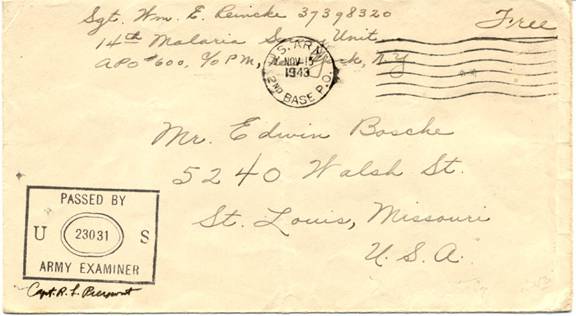 Sgt. Wm. E. Reincke 37398320
Free
14th Malaria Unit
APO #600, c/o PM, N Y
U.S. ARMY
NOV 15
1943
2ND BASE P.O.
Mr. Edwin Bosche
5240 Walsh St.
St. Louis, Missouri
U.S.A.
PASSED BY
U 23031 S
ARMY EXAMINER
Capt. R. L.